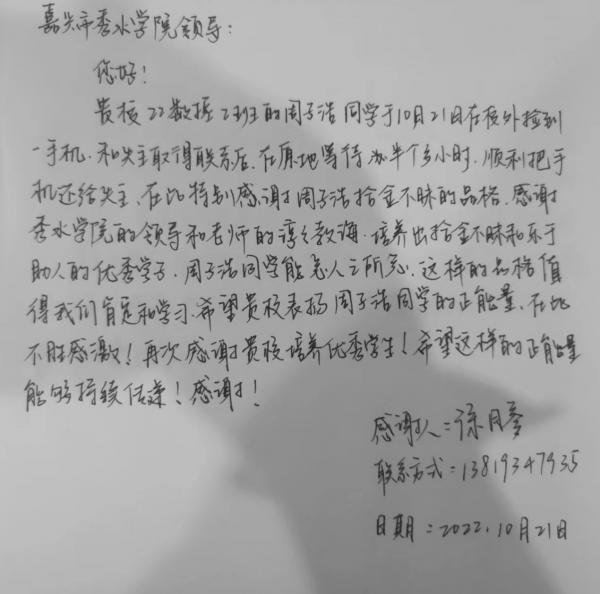 嘉兴市秀水学院领导:
您好!
贵校22数据2班的周子浩同学于10月21日在校外捡到
一手机.和失主取得联系后.在原地等待 半个多小时.顺利把手
机还给失主、在此特别感谢周子浩拾金不昧的品格.感谢
秀水学院的领导和老师的谆谆教诲.培养出拾金不昧和乐于
助人的优秀学子.周子浩同学能急人之所急.这样的品格值
得我们肯定和学习.希望贵校表扬周子浩同学的正能量、在此
不胜感激!再次感谢贵校培养优秀学生!希望这样的正能量
能够持续传递!感谢!
感谢人:徐月
联系方式:13819347935
日期:2022.10月21日